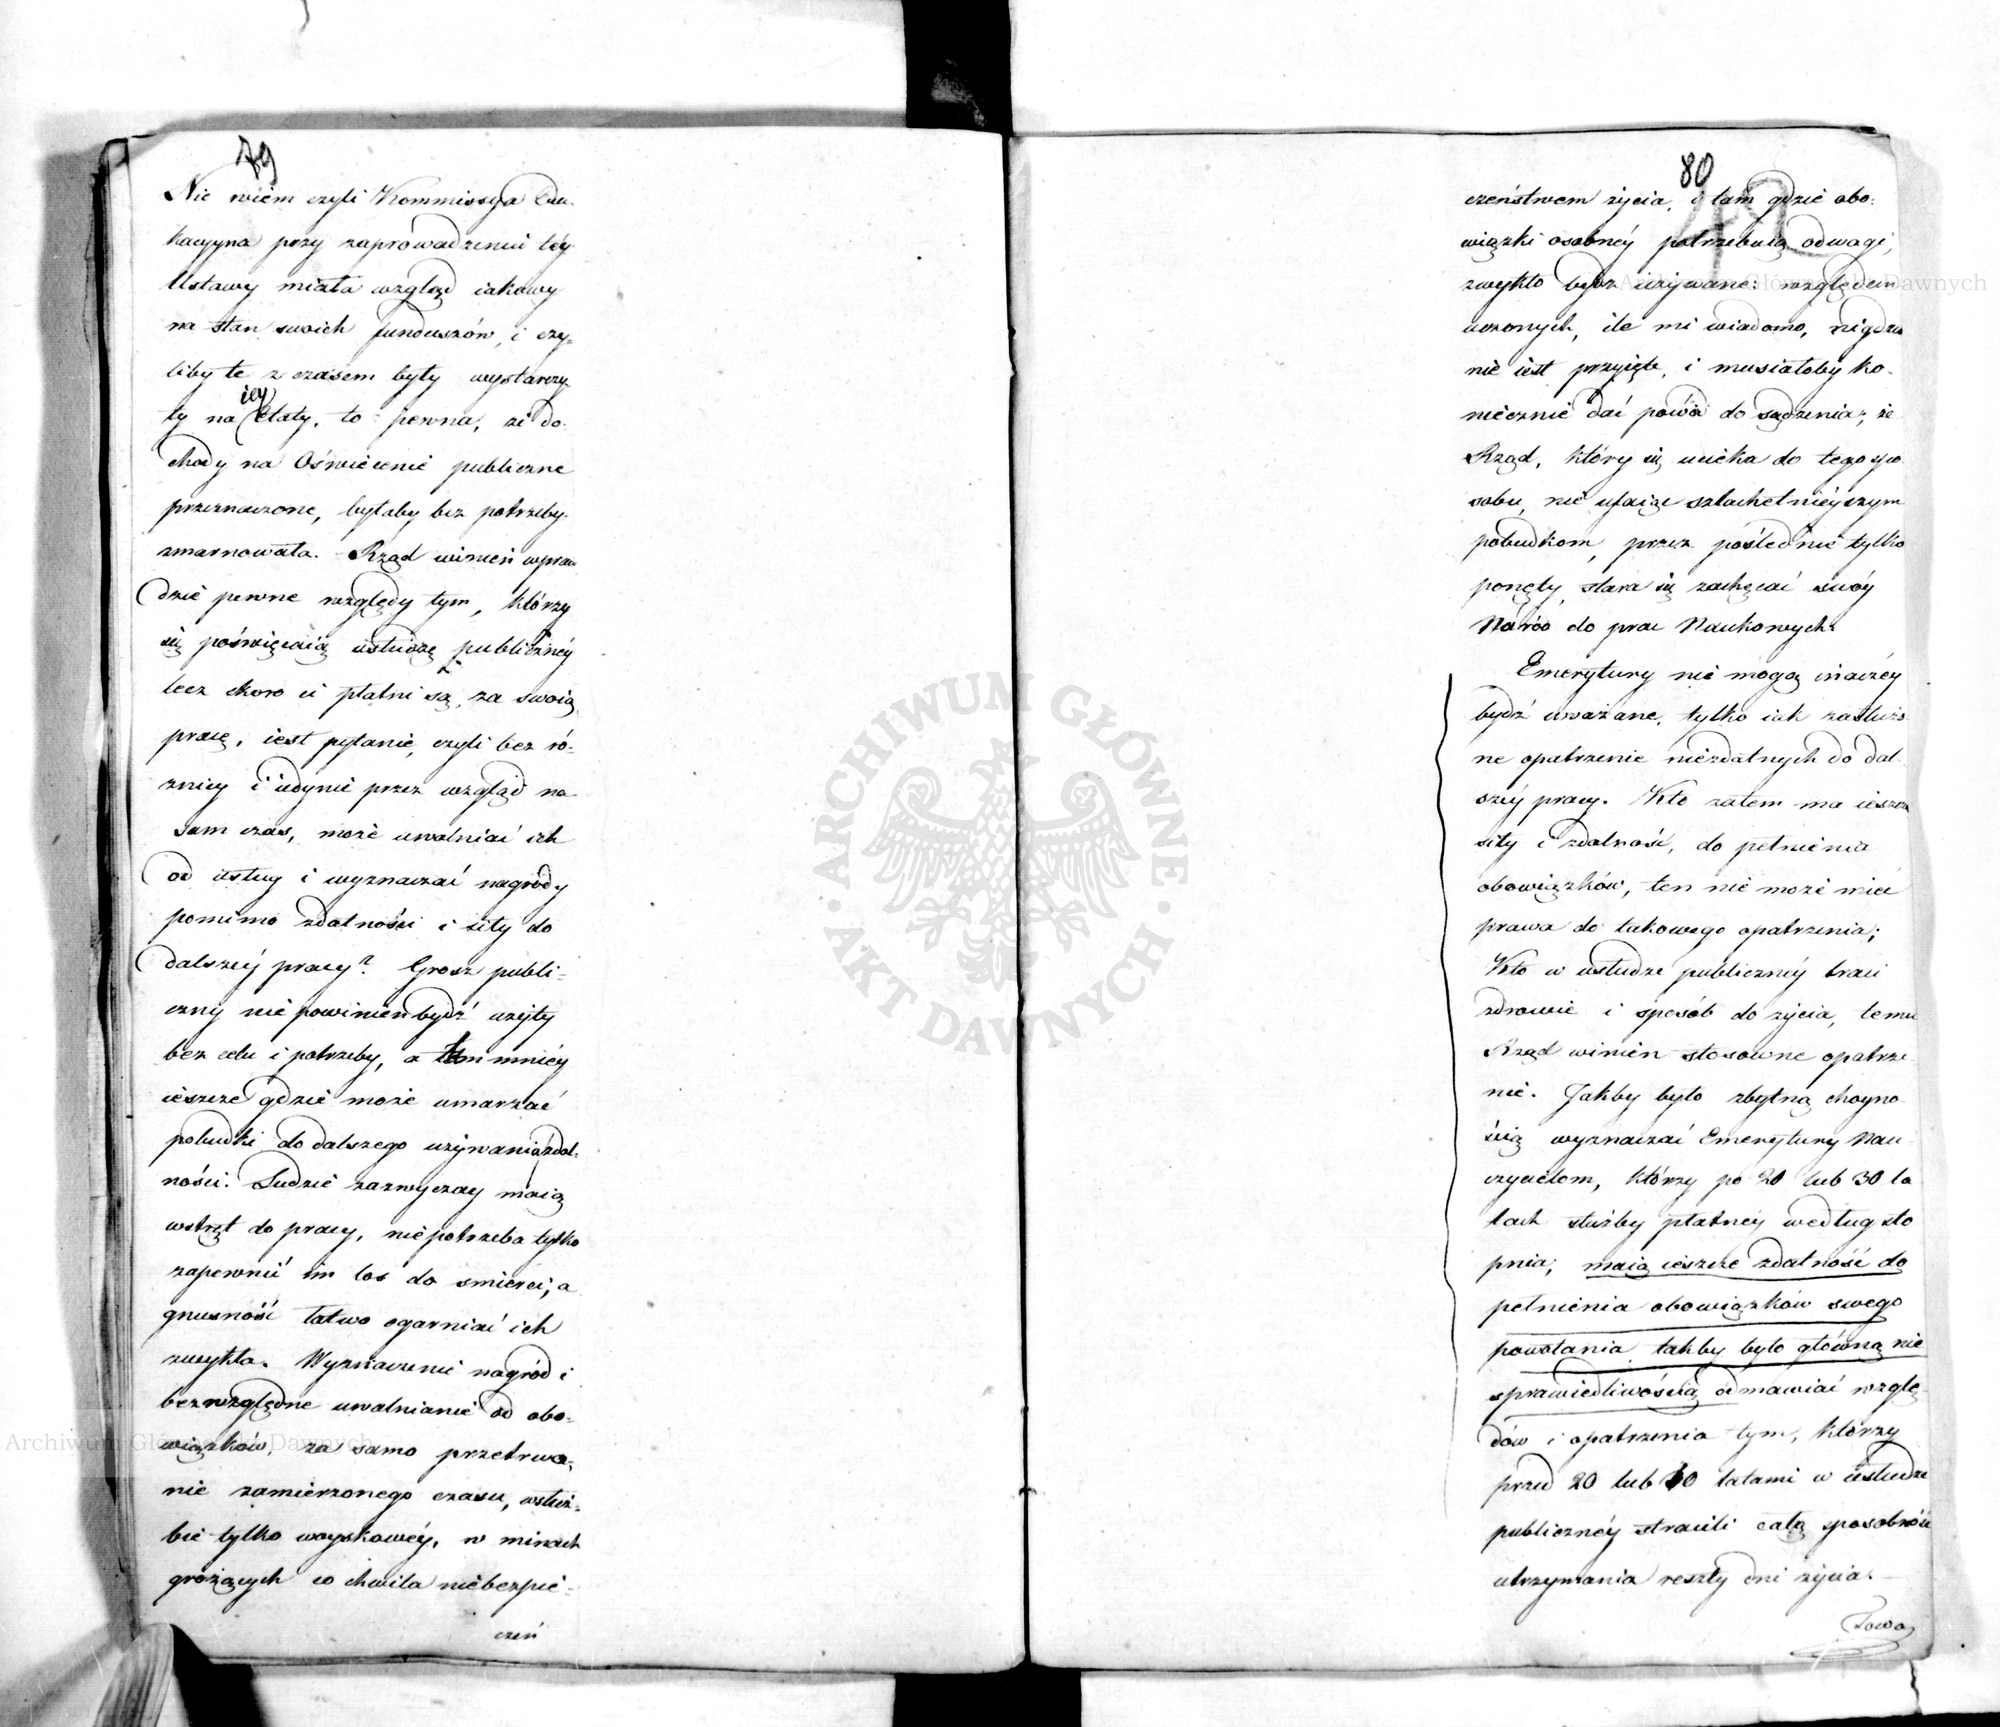 79
Nie wiém czyli Kommissya Edu-
kacyyna przy zaprowadzeniu téy
Ustawy miała wzgląd iakowy
na stan swoich funduszów, i czy-
liby te z czasem były wystarczy-
ły na iey Etaty, to pewna, że do-
chody na Oświecenie publiczne
przeznaczone, byłaby bez potrzeby
zmarnowała. Rząd winień wpraw-
dzie pewne względy tym, którzy
się poświęcaią usłudze publicznéy
lecz skoro ci płatni są, za swoią
pracę, iest pytanie, czyli bez ró-
żnicy i iedynie przez wzgląd na
sam czas, może uwalniać ich
od usług i wyznaczać nagrody
pomimo zdatności i siły do
dalszéy pracy? Grosz publi-
czny nie powinien bydź użyty
bez celu i potrzeby, a tém mniéy
ieszcze gdzie może umarzać
pobudki do dalszego używania zdat-
ności. Ludzie zazwyczay maią
wstręt do pracy, niepotrzeba tylko
zapewnić im los do smierci, a
gnusność łatwo ogarniać ich
zwykła. Wyznaczenie nagród i
bezwzględne uwalnianie od obo-
wiązków, za samo przetrwa-
nie zamierzonego czasu, w służ-
bie tylko woyskowéy, w minach
grożących co chwila niebezpie-
czeń
80
czeństwem życia, i tam gdzie obo-
wiązki osobnéy potrzebuią odwagi,
zwykło bydź używane: względem
uczonych, ile mi wiadomo, nigdzie
nie iest przyięte, i musiałoby ko-
niecznie dać powód do sądzenia, że
Rząd, który się ucieka do tego spo-
sobu, nie ufaiąc szlachetnieyszym
pobudkom, przez poślednie tylko
ponęty stara się zachęcać swóy
Naród do prac Naukowych.
Emerytury nie mogą inaczéy
bydź uważane, tylko iak zasłużo-
ne opatrzenie niezdatnych do dal-
széy pracy. Kto zatem ma ieszcze
siły i zdatność, do pełnienia
obowiązków, ten nie może mieć
prawa do takowego opatrzenia;
Kto w usłudze publicznéy traci
zdrowie i sposób do życia, temu
Rząd winien stosowne opatrze-
nie. Jakby było zbytną choyno-
ścią wyznaczać Emerytury Nau-
czycielom, którzy po 20 lub 30 la-
tach służby płatnéy według sto-
pnia, maią ieszcze zdatność do
pełnienia obowiązków swego
powołania, takby było główną nie-
sprawiedliwością odmawiać wzglę-
dów i opatrzenia tym, którzy
przed 20 lub 10 latami w usłudze
publicznéy stracili całą sposobność
utrzymania reszty dni życia.
Towa
ARCHIWUM GŁÓWNE
AKT DAWNYCH